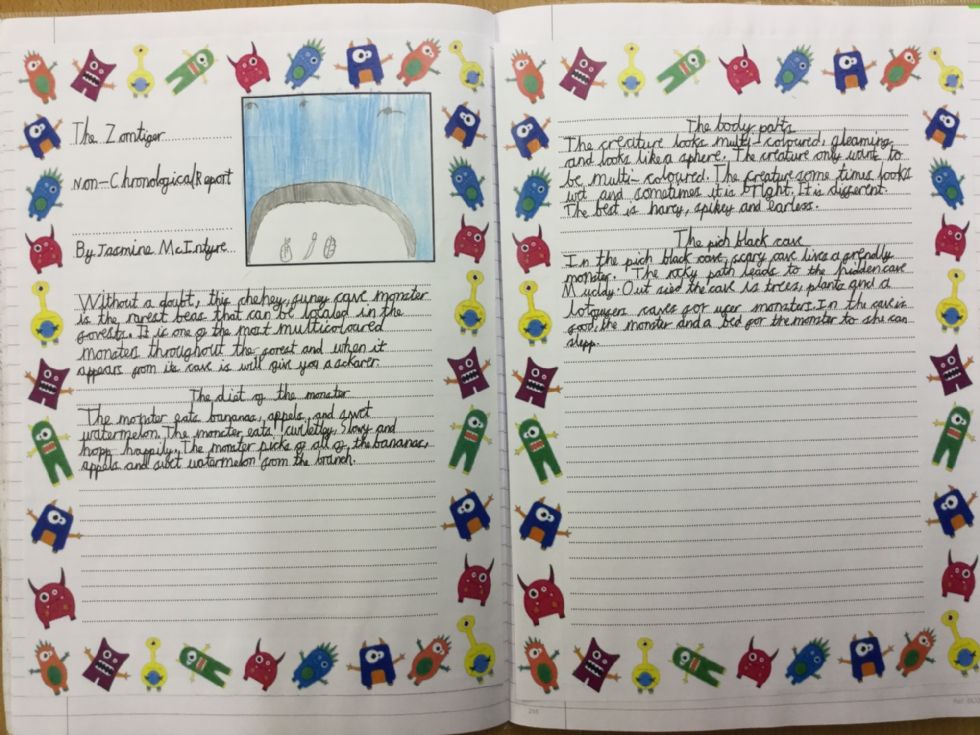 The Zomtiger
Non-Chronological Report
By Jasmine McIntyre
Without a doubt, this chehey, suney cave monster
is the rarest beas that can be located in the
forests. It is one of the most multicoloured
monsters throughout the forest and when it
appears from its cave is will give you a scarer.
The diet of the monster
The monster eats bananas, appels, and swet
watermelon. The monster eats slowy and
hopp happily. The monster picks of all of the bananas,
appels and swet watermelon from the branch.
The body parts
The creature looks multi-coloured, gleaming
and looks like a sphere. The creature only want to
be multi-coloured. The creature some times looks
wet and sometimes it is bright. It is different.
The best is harey, spikey and earless.
The pich black cave
In the pich black cave, scary cave lives a frendly
monster. The rocky path leads to the hidden cave
Out sied the cave is trees, plants and a
caves for uver monsters. In the cave is
food, the monster and a bed for the monster to she can
slepp.
296